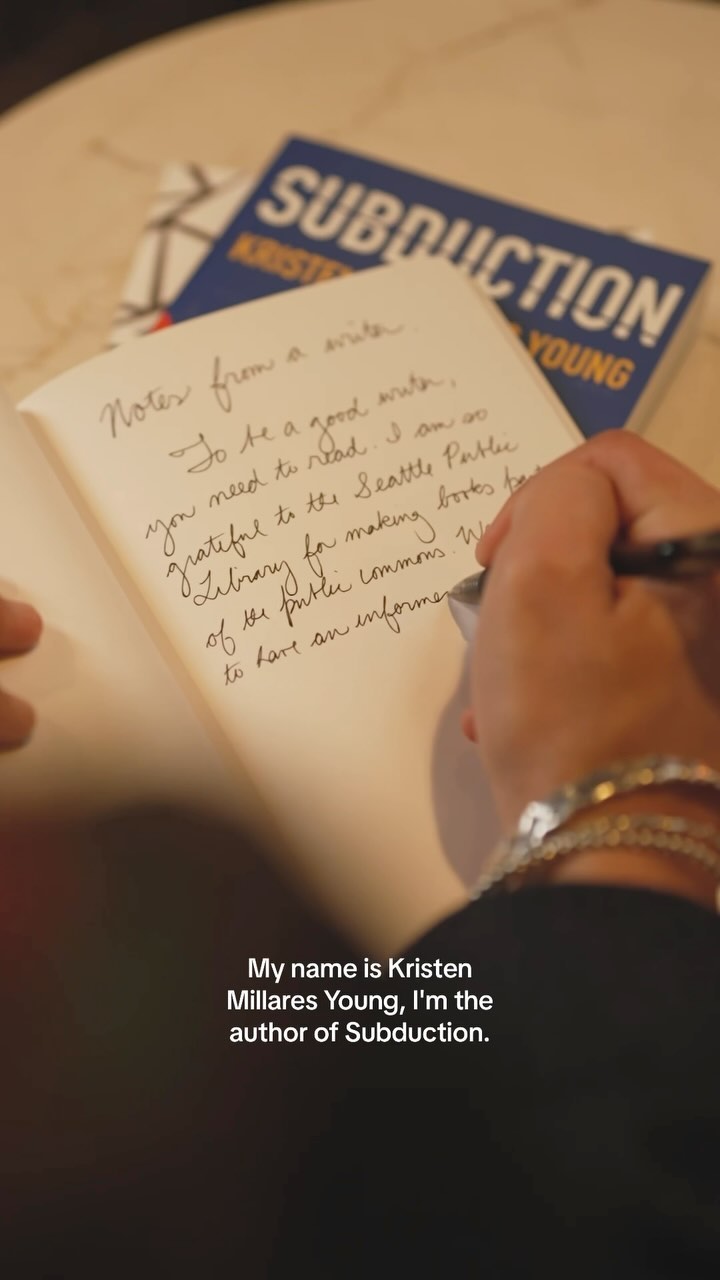 SUBDUCTION
KRISTEN
YOUNG
Notes from a writer.
To be a good writer,
you need to read. I am so
grateful to the Seattle Public
Library for making books part
of the public commons. We
to have an informe
My name is Kristen
Millares Young, I'm the
author of Subduction.